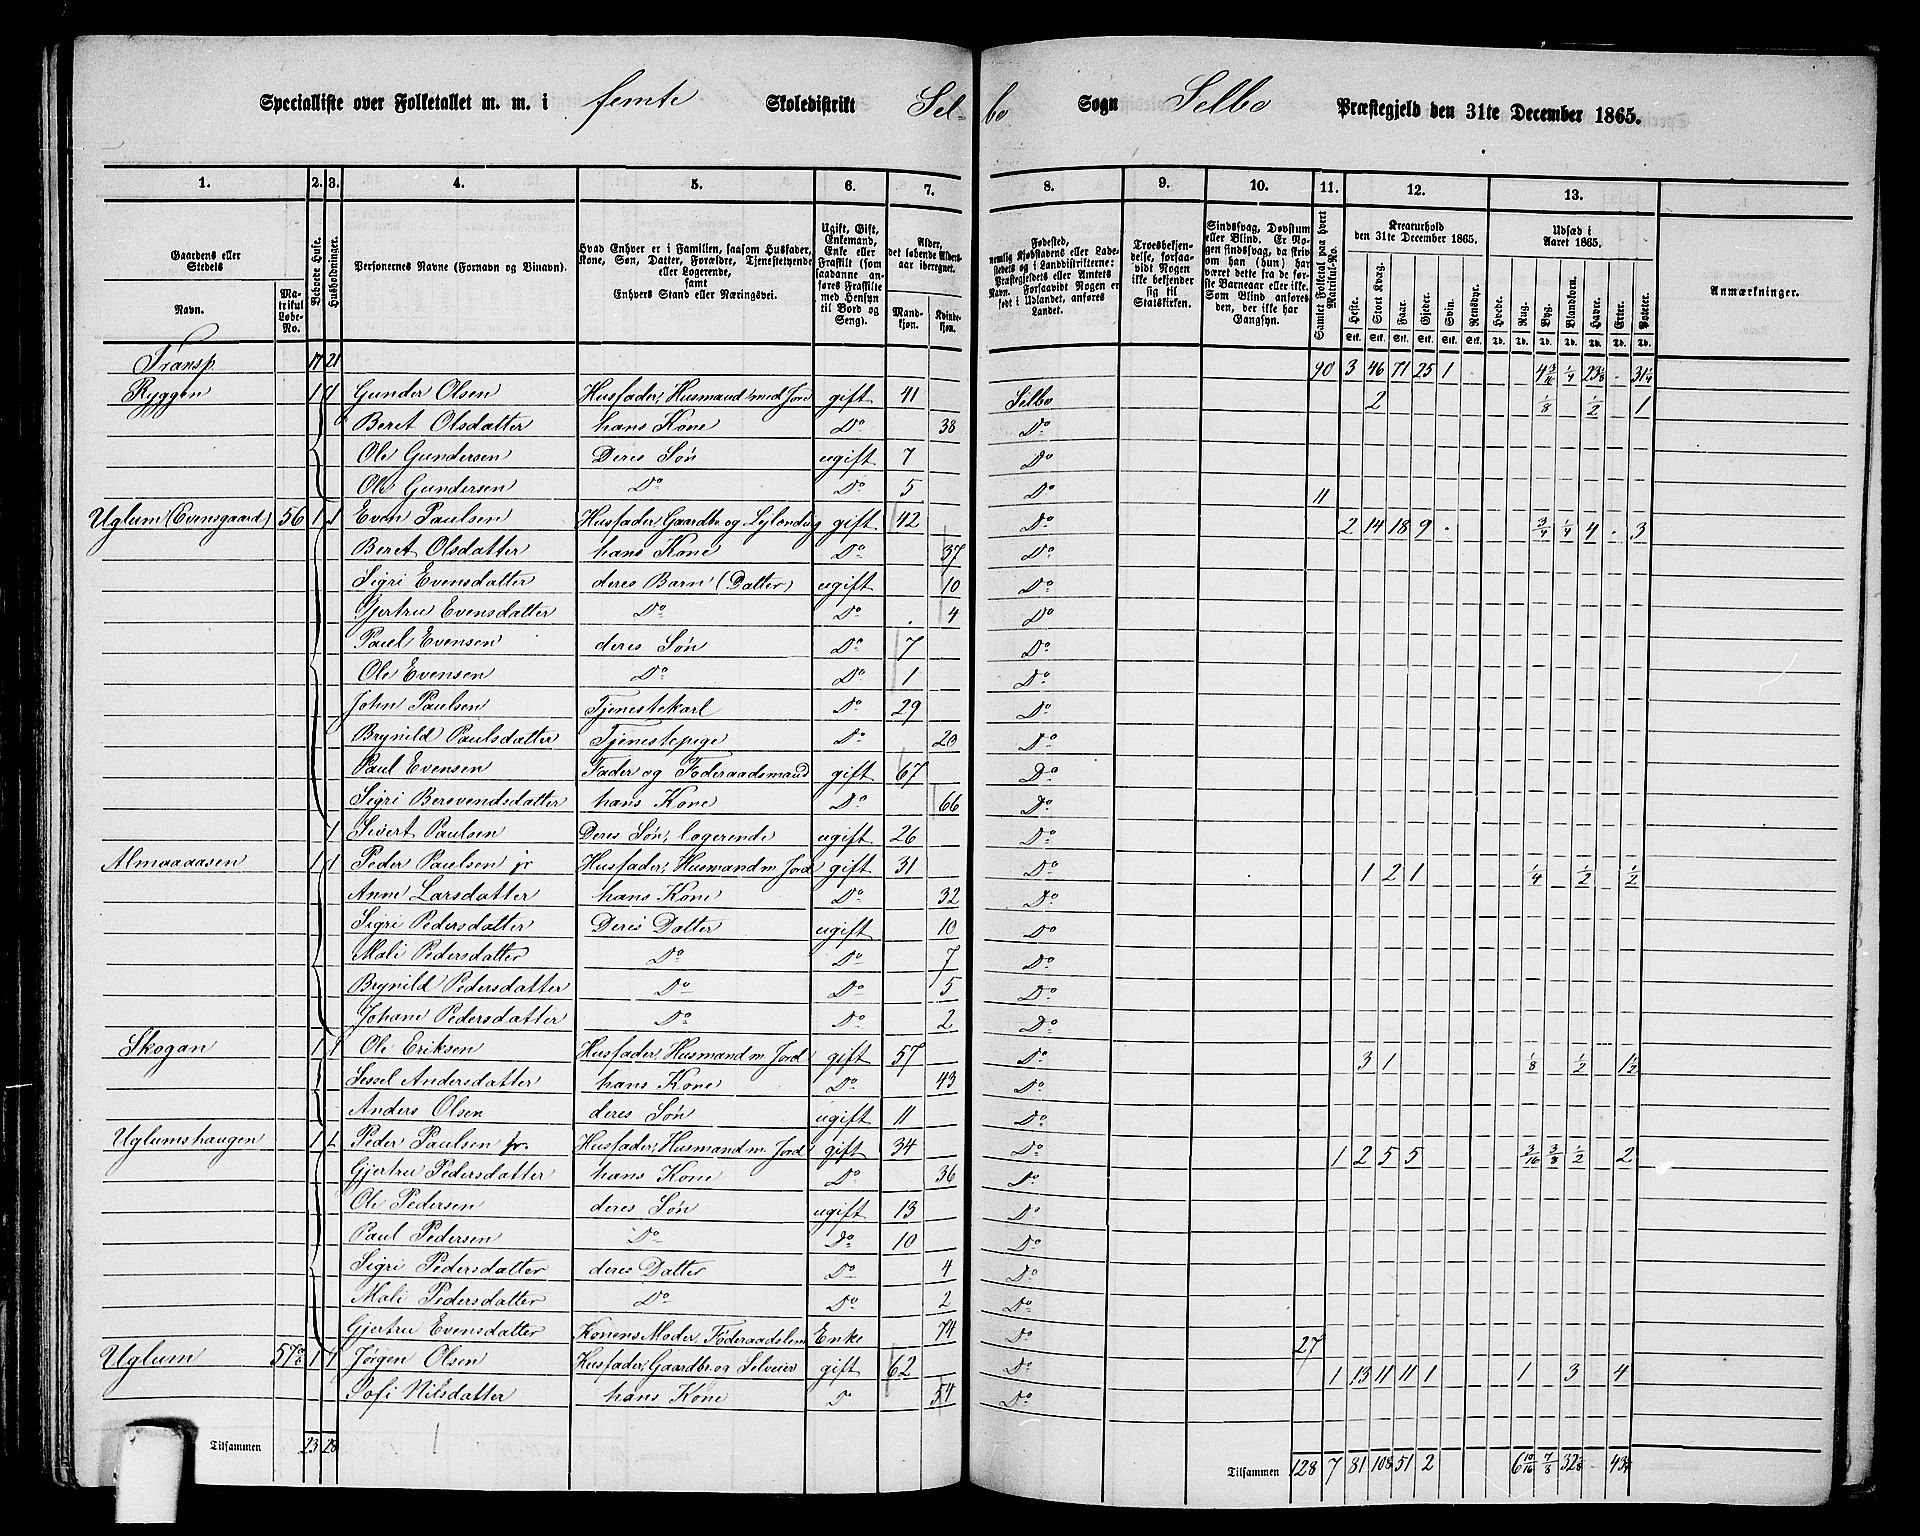 Specialliste over Folketallet m. m. i femte Skoledistrikt Selbo Sogn Selbo Præstegjeld den 31te December 1865.
1. 2. 3. 4. 5. 6. 7. 8. 9. 10. 11. 12. 13.
Gaardens eller Stedets
Navn.
Matrikul Løbe-No.
Beboede Huse.
Husholdninger.
Personernes Navne (Fornavn og Vinavn).
Hvad Enhver er i Familien, saasom Husfader, Kone, Søn, Datter, Forældre, Tjenestetyende eller Logerende, samt Enhvers Stand eller Næringsvei.
Ugift, Gift, Enkemand, Enke eller Fraskilt (som saadanne anføres Fraskilte med Hensyn til Bord og Seng).
Alder, det løbende Aldersaar iberegnet.
Mandkjøn. Kvindekjøn.
Fødested, nemlig Kjøbstadens eller Ladestedets og i Landdistrikterne: Præstegjeldets eller Amtets Navn. Forsaavidt Nogen er født i Udlandet, anføres Landet.
Troesbekjendelse, forsaavidt Nogen ikke bekjender sig til Statskirken.
Sindssvag, Døvstum eller Blind. Er Nogen sindssvag, da skrives om han (hun) har været dette fra de første Barneaar eller ikke. Som Blind anføres den, der ikke har Gangsyn.
Samlet Folketal paa hvert Matrikul-No.
Kreaturhold den 31te December 1865.
Heste. Stort Kvæg. Faar. Gjeder. Svin. Rensdyr.
Udsæd i Aaret 1865.
Hvede. Rug. Byg. Blandkorn. Havre. Erter. Poteter.
Stk. Stk. Stk. Stk. Stk. Stk. Td. Td. Td. Td. Td. Td. Td.
Anmærkninger.
Transp. 17 21 90 3 46 71 25 1 4 3/16 1/4 23 1/8 - 31 1/4
Ryggen 1 1 Gunder Olsen Husfader, Husmand med Jord gift 41 Selbo 2 1/8 1/2 1
Beret Olsdatter hans Kone Do 38 Do
Ole Gundersen Deres Søn ugift 7 Do
Ole Gundersen Do Do 5 Do 11
Uglum (Evensgaard) 56 1 1 Even Paulsen Husfader, Gaardbr og gift 42 Do 2 14 18 9 - 3/4 1/4 4 - 3
Beret Olsdatter hans Kone Do 37 Do
Sigri Evensdatter deres Barn (Datter) ugift 10 Do
Gjertru Evensdatter Do Do 4 Do
Paul Evensen deres Søn Do 7 Do
Ole Evensen Do Do 1 Do
John Paulsen Tjenestekarl Do 29 Do
Brynild Paulsdatter Tjenestepige Do 20 Do
Paul Evensen Fader og Føderaadsmand gift 67 Do
Sigri Berevendsdatter hans Kone Do 66 Do
1 Sivert Paulsen Deres Søn, logerende ugift 26 Do
Almaaaasen 1 1 Peder Paulsen jr Husfader, Husmand m. Jord gift 31 Do 1 2 1 1/4 1/2 1/2
Anne Larsdatter hans Kone Do 32 Do
Sigri Pedersdatter Deres Datter ugift 10 Do
Mali Pedersdatter Do Do 7 Do
Brynild Pedersdatter Do Do 5 Do
Johane Pedersdatter Do Do 2 Do
Skogan 1 1 Ole Eriksen Husfader, Husmand m. Jord gift 57 Do 3 1 1/8 1/2 1 1/2
Sessel Andersdatter hans Kone Do 43 Do
Anders Olsen deres Søn ugift 11 Do
Uglumshaugen 1 1 Peder Paulsen Husfader, Husmand m. Jord gift 34 Do 1 2 5 5 3/16 3/8 1/2 2
Gjertru Pedersdatter hans Kone Do 36 Do
Ole Pedersen deres Søn ugift 13 Do
Paul Pedersen Do Do 10 Do
Sigri Pedersdatter deres Datter Do 4 Do
Mali Pedersdatter Do Do 2 Do
Gjertru Evensdatter Konens Moder, Føderaadslem Enke 74 Do 27
Uglum 57 1 1 Jørgen Olsen Husfader, Gaardbr. og Selveier gift 62 Do 1 13 11 11 1 1 3 4
Sofi Nilsdatter hans Kone D 54 Do
Tilsammen 23 28 1 Tilsammen 128 7 81 108 51 2 6 10/16 7/8 32 1/8 - 43 1/4